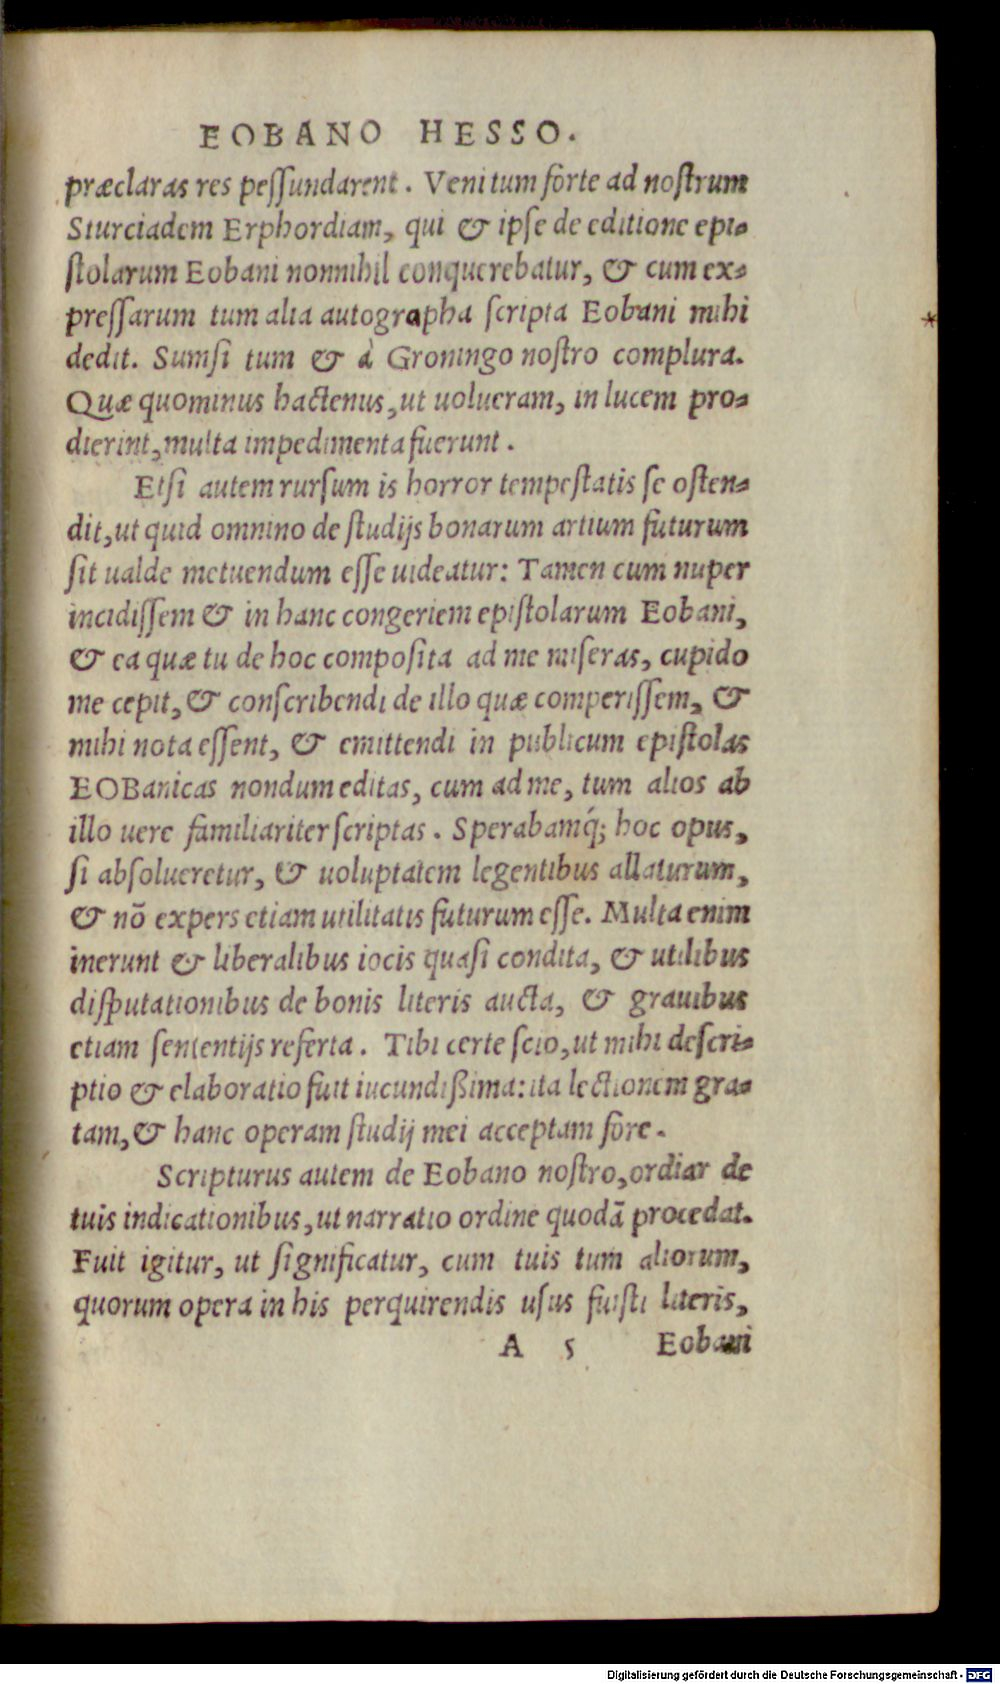 EOBANO HESSO.
præclaras res peſſundarent. Veni tum forte ad noſtrum
Sturciadem Erphordiam, qui & ipſe de editione epi-
ſtolarum Eobani nonnihil conquerebatur, & cum ex-
preſſarum tum alia autographa ſcripta Eobani mihi
dedit. Sumſi tum & à Groningo noſtro complura.
Quæ quominus hactenus, ut uolueram, in lucem pro-
dierint, multa impedimenta fuerunt.
Etſi autem rurſum is horror tempeſtatis ſe oſten-
dit, ut quid omnino de ſtudijs bonarum artium futurum
ſit ualde metuendum eſſe uideatur: Tamen cum nuper
incidiſſem & in hanc congeriem epiſtolarum Eobani,
& ea quæ tu de hoc compoſita ad me miſeras, cupido
me cepit, & conſcribendi de illo quæ comperiſſem, &
mihi nota eſſent, & emittendi in publicum epiſtolas
EOBanicas nondum editas, cum ad me, tum alios ab
illo uere familiariter ſcriptas. Sperabamq́; hoc opus,
ſi abſolueretur, & uoluptatem legentibus allaturum,
& nō expers etiam utilitatis futurum eſſe. Multa enim
inerunt & liberalibus iocis quaſi condita, & utilibus
diſputationibus de bonis literis aucta, & grauibus
etiam ſententijs referta. Tibi certe ſcio, ut mihi deſcri-
ptio & elaboratio fuit iucundißima: ita lectionem gra-
tam, & hanc operam ſtudij mei acceptam fore.
Scripturus autem de Eobano noſtro, ordiar de
tuis indicationibus, ut narratio ordine quodā procedat.
Fuit igitur, ut ſignificatur, cum tuis tum aliorum,
quorum opera in his perquirendis uſus fuiſti literis,
A 5 Eobani
Digitalisierung gefördert durch die Deutsche Forschungsgemeinschaft - DFG